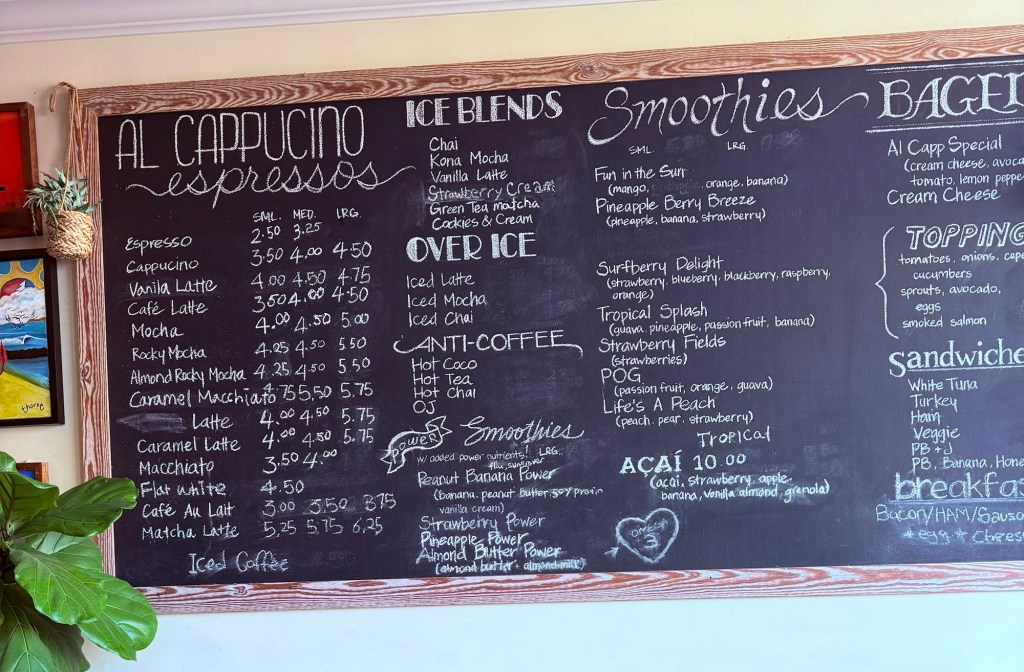 AL CAPPUCINO
espressos
SML. MED. LRG.
Espresso 2.50 3.25
Cappucino 3.50 4.00 4.50
Vanilla Latte 4.00 4.50 4.75
Café Latte 3.50 4.00 4.50
Mocha 4.00 4.50 5.00
Rocky Mocha 4.25 4.50 5.50
Almond Rocky Mocha 4.25 4.50 5.50
Caramel Macchiato 4.75 5.50 5.75
Latte 4.00 4.50 5.75
Caramel Latte 4.00 4.50 5.75
Macchiato 3.50 4.00
Flat white 4.50
Café Au Lait 3.00 3.50 3.75
Matcha Latte 5.25 5.75 6.25
Iced Coffee
ICE BLENDS
Chai
Kona Mocha
Vanilla Latte
Strawberry Cream
Green Tea matcha
Cookies & Cream
OVER ICE
Iced Latte
Iced Mocha
Iced Chai
ANTI-COFFEE
Hot Coco
Hot Tea
Hot Chai
OJ
POWER Smoothies
w/ added power nutrients! LRG.
Peanut Banana Power
(banana, peanut butter, soy protein
vanilla cream)
Strawberry Power
Pineapple Power
Almond Butter Power
(almond butter - almond milk)
Smoothies
SML. LRG.
Fun in the Sun
(mango, orange, banana)
Pineapple Berry Breeze
(pineapple, banana, strawberry)
Surfberry Delight
(strawberry, blueberry, blackberry, raspberry,
orange)
Tropical Splash
(guava, pineapple, passion fruit, banana)
Strawberry Fields
(strawberries)
POG
(passion fruit, orange, guava)
Life's A Peach
(peach, pear, strawberry)
Tropical
AÇAÍ 10.00
(acai, strawberry, apple,
banana, vanilla almond, grenola)
OMEGA
3
BAGEL
Al Capp Special
(cream cheese, avoca
tomato, lemon peppe
Cream Cheese
TOPPING
tomatoes, onions, cape
cucumbers
sprouts, avocado,
eggs
smoked salmon
Sandwiche
White Tuna
Turkey
Ham
Veggie
PB + J
PB, Banana, Hone
breakfas
Bacon/HAM/Sausa
egg Cheese
thorne